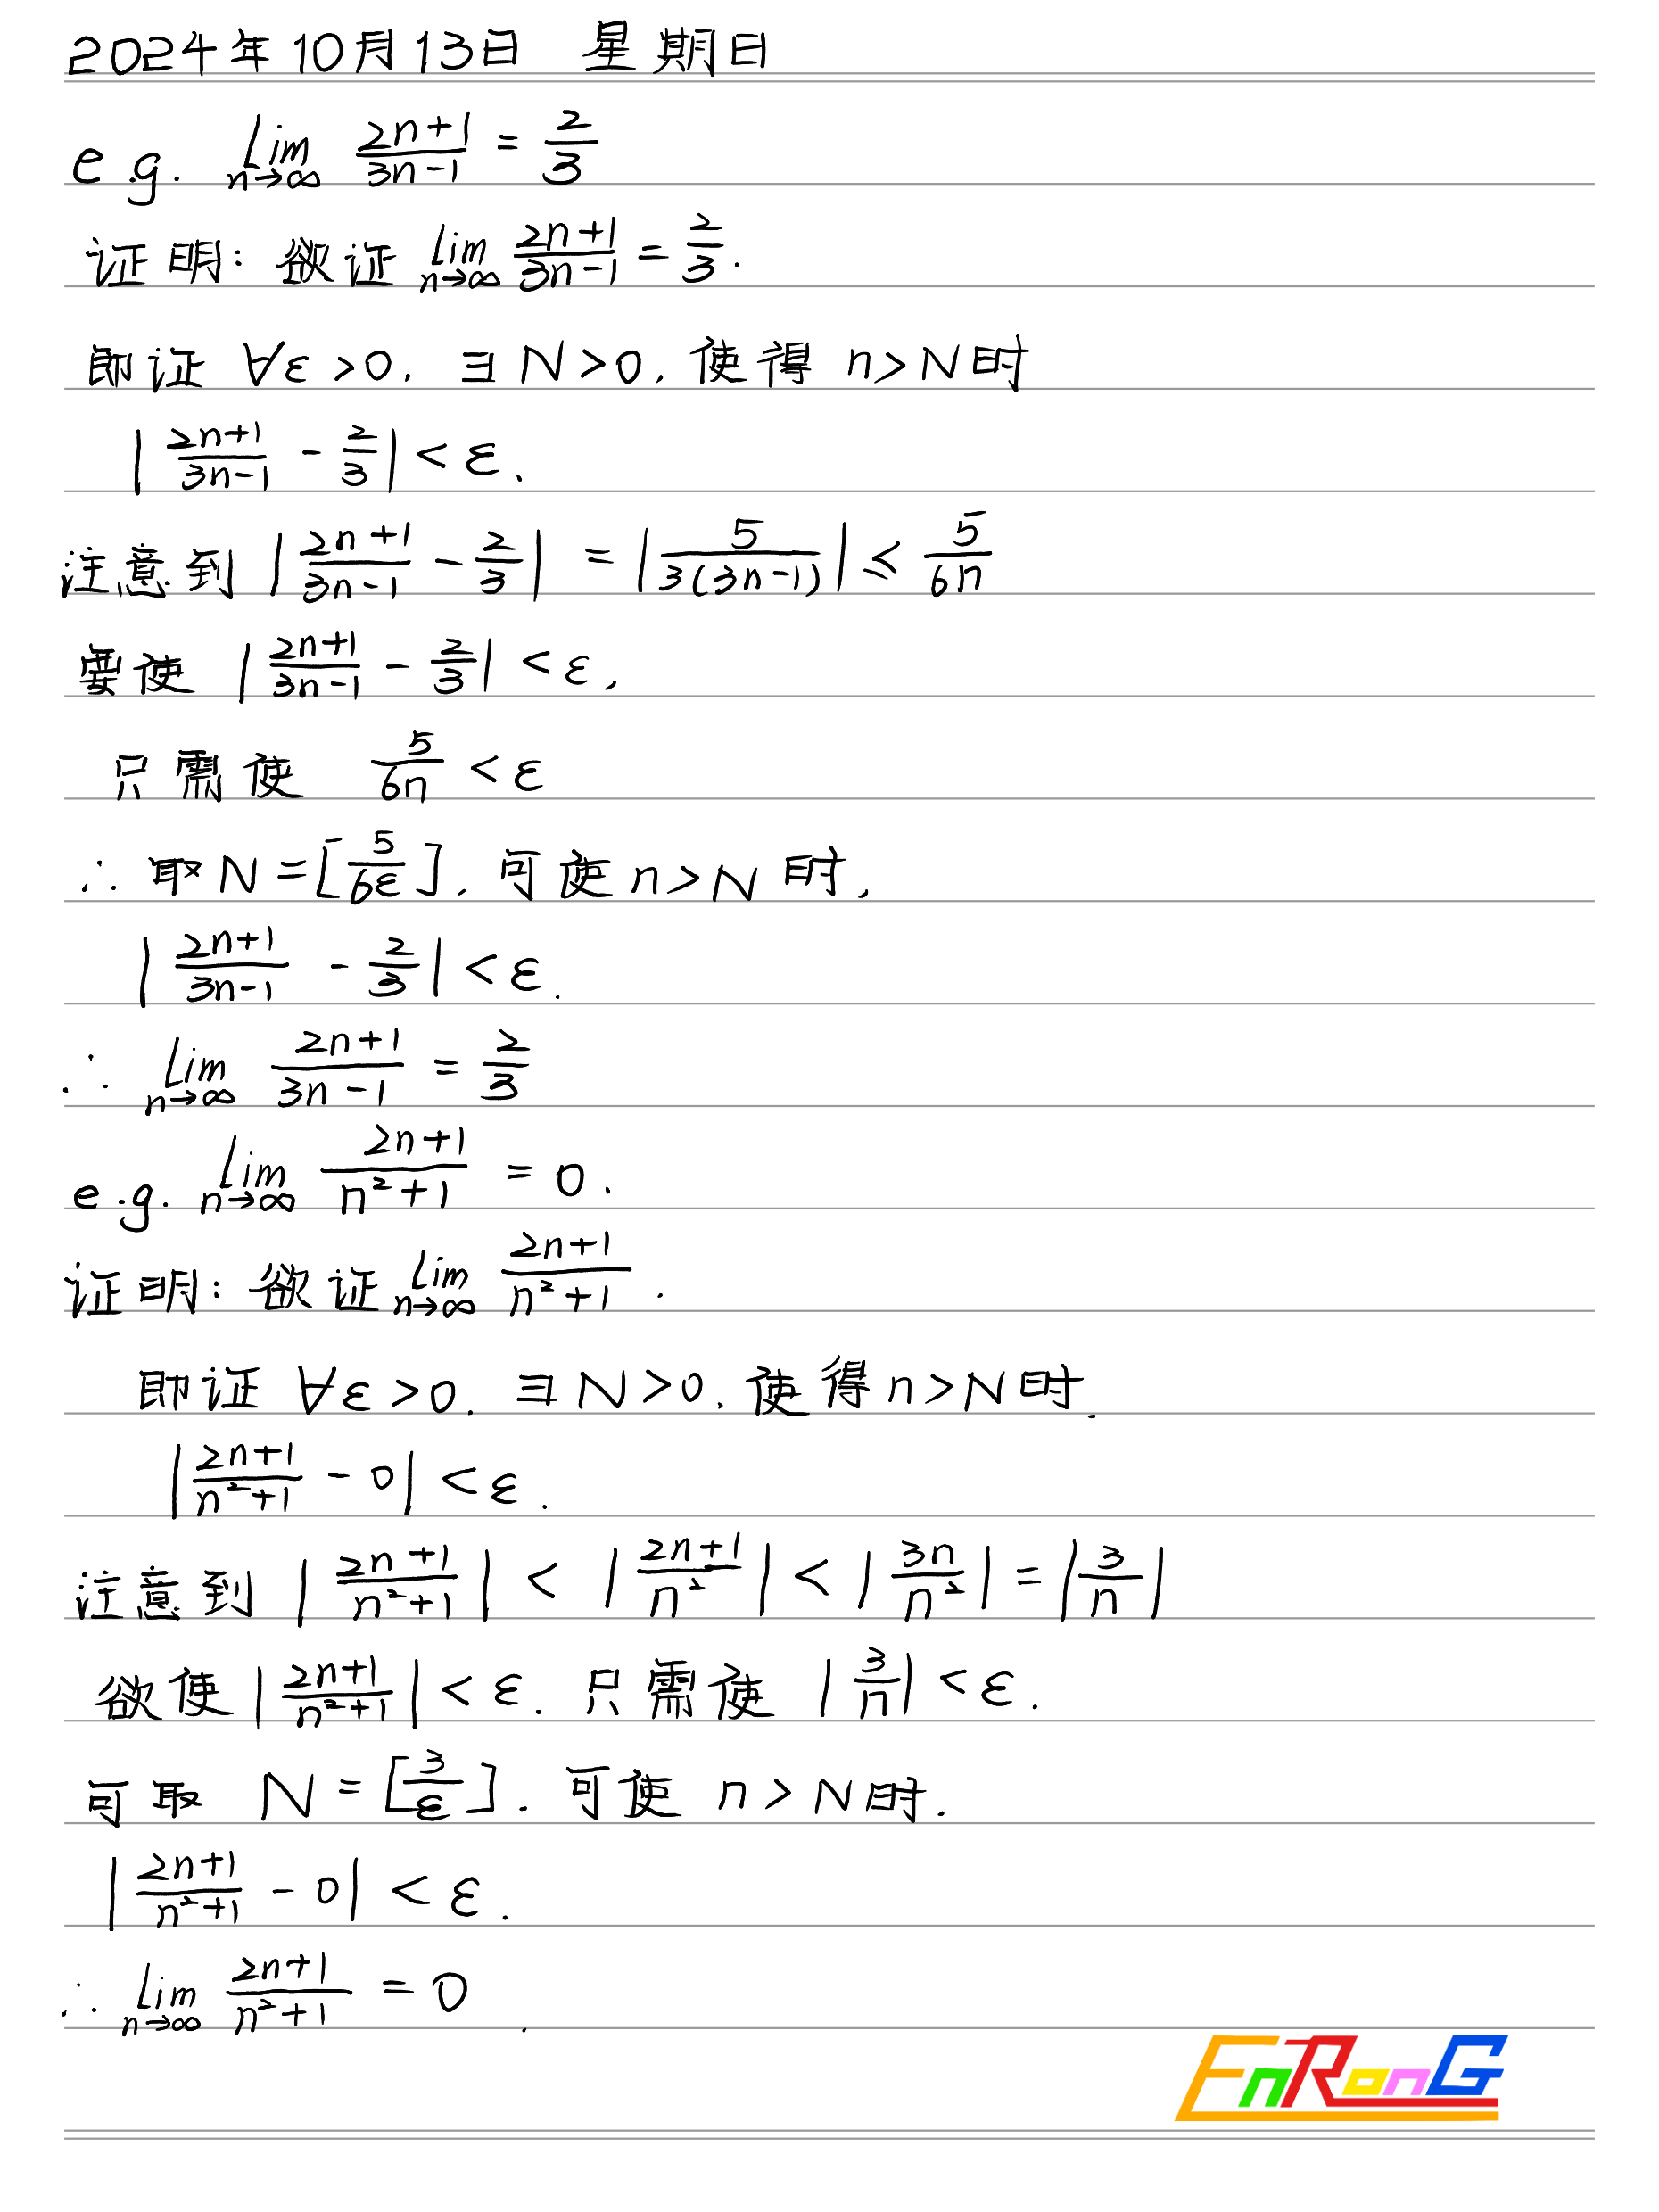 2024年10月13日 星期日
e.g. lim n→∞ (2n+1)/(3n-1) = 2/3
证明: 欲证 lim n→∞ (2n+1)/(3n-1) = 2/3.
即证 ∀ε>0, ∃N>0, 使得 n>N时
|(2n+1)/(3n-1) - 2/3| < ε.
注意到 |(2n+1)/(3n-1) - 2/3| = |5/(3(3n-1))| ≤ 5/(6n)
要使 |(2n+1)/(3n-1) - 2/3| < ε,
只需使 5/(6n) < ε
∴ 取 N = [5/(6ε)], 可使 n>N 时,
|(2n+1)/(3n-1) - 2/3| < ε.
∴ lim n→∞ (2n+1)/(3n-1) = 2/3
e.g. lim n→∞ (2n+1)/(n²+1) = 0.
证明: 欲证 lim n→∞ (2n+1)/(n²+1).
即证 ∀ε>0, ∃N>0, 使得 n>N时.
|(2n+1)/(n²+1) - 0| < ε.
注意到 |(2n+1)/(n²+1)| < |(2n+1)/n²| < |3n/n²| = |3/n|
欲使 |(2n+1)/(n²+1)| < ε. 只需使 |3/n| < ε.
可取 N = [3/ε]. 可使 n>N时.
|(2n+1)/(n²+1) - 0| < ε.
∴ lim n→∞ (2n+1)/(n²+1) = 0.
EnRonG